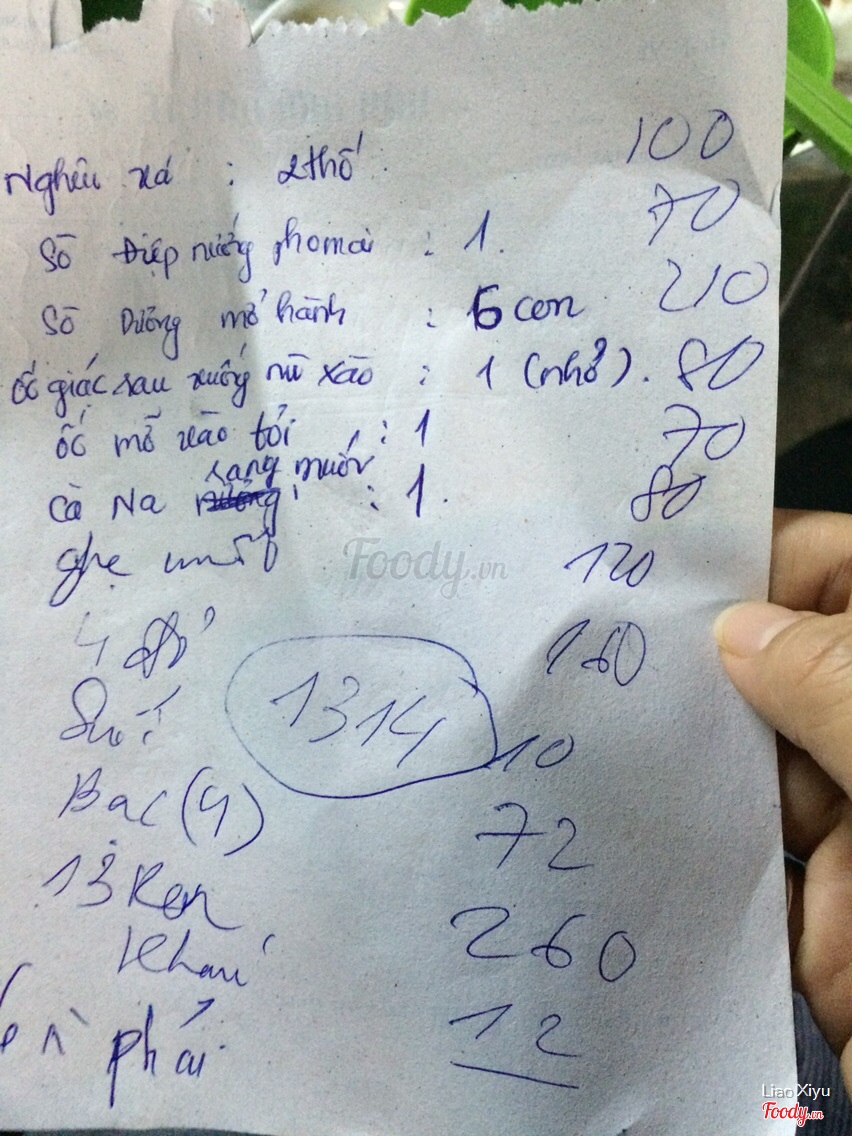 Nghêu xá : 2 thố 100
Sò Điệp nướng phomai : 1. 70
Sò Dương mỡ hành : 6 con 210
ốc giác sau xuống nữ xào : 1 (nhỏ). 80
ốc mỡ xào tỏi : 1 70
rang muối
cà Na : 1. 80
ghẹ 120
Foody.vn
4 160
Suối 10
1314
Bạc (4) 72
13 Ken 260
Khăn 12
phải
Liao Xiyu
Foody.vn